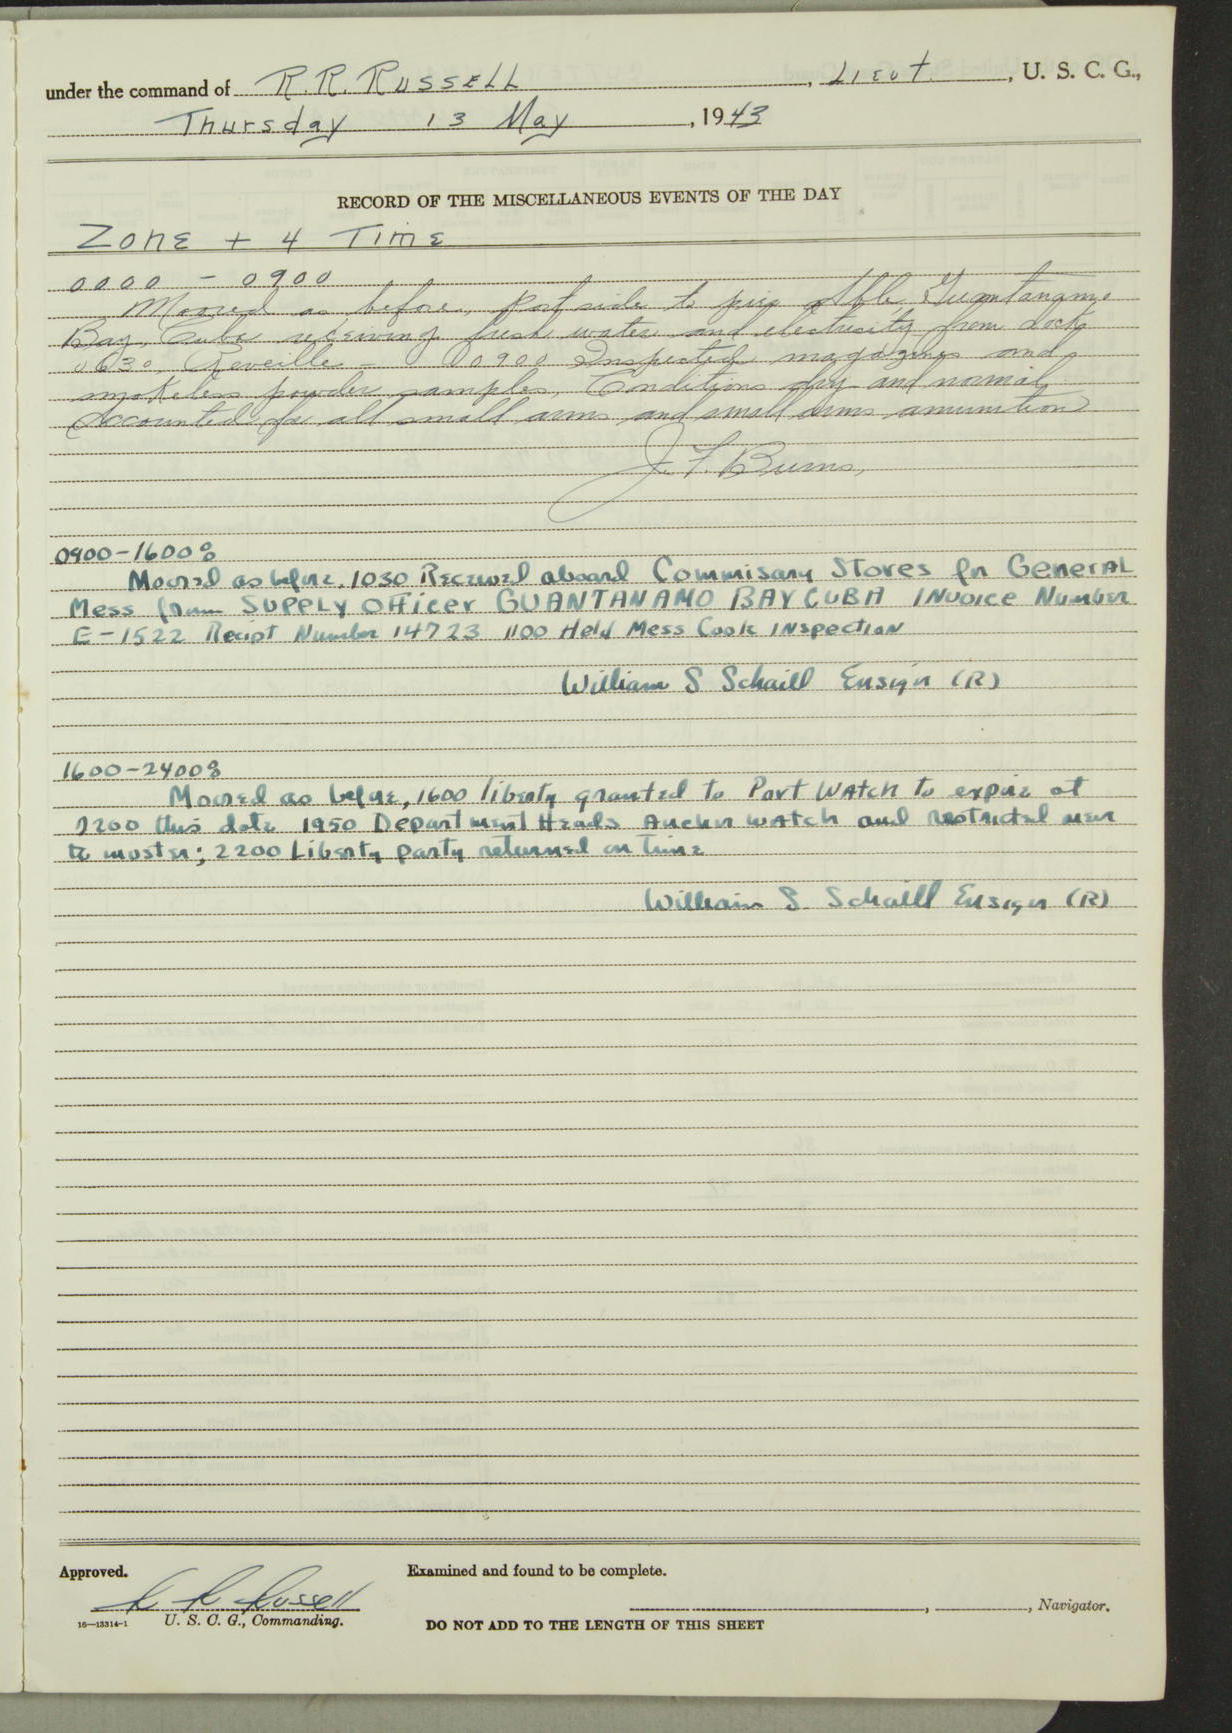 under the command of R. R. RUSSELL, Lieut., U. S. C. G.,
Thursday 13 May, 1943
RECORD OF THE MISCELLANEOUS EVENTS OF THE DAY
Zone + 4 Time
0000 - 0900
Moored as before, port side to pier Guantanamo
Bay, Cuba receiving fresh water and electricity from dock
0630, Reveille - 0900 Inspected magazines and
smokeless powder samples, Conditions dry and normal,
Accounted for all small arms and small arms amunition
J. F. Burns,
0900-1600:
Moored as before. 1030 Received aboard Commisary Stores for General
Mess from SUPPLY OFFicer GUANTANAMO BAY CUBA INVoice Number
E-1522 Recipt Number 14723 1100 Held Mess Cook INspection
William S Schaill Ensign (R)
1600-2400:
Moored as before, 1600 liberty granted to Port Watch to expire at
2200 this date 1950 Department Heads Anchor watch and restricted men
to muster; 2200 Liberty party returned on time
William S. Schaill Ensign (R)
Approved.
Examined and found to be complete.
R R Russell
, , Navigator.
16—13314-1 U. S. C. G., Commanding.
DO NOT ADD TO THE LENGTH OF THIS SHEET